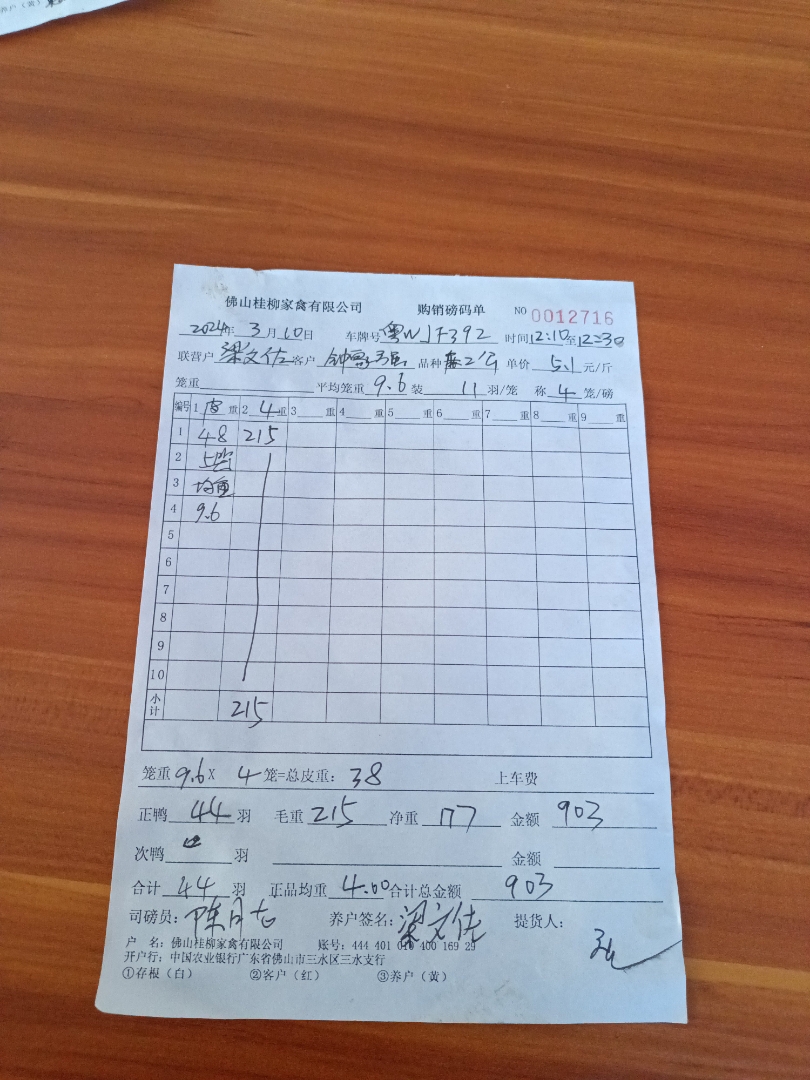 养户（黄）
佛山桂柳家禽有限公司 购销磅码单 NO 0012716
2024年 3月 10日 车牌号 粤WJF392 时间 12:10至12:30
联营户 梁文佐 客户 钟 强 品种 单价 5.1 元/斤
笼重 平均笼重 9.6 装 11 羽/笼 称 4 笼/磅
编号 1 皮 重 2 4 重 3 重 4 重 5 重 6 重 7 重 8 重 9 重
1 48 215
2 5笼
3 均重
4 9.6
5
6
7
8
9
10
小计 215
笼重 9.6 X 4 笼=总皮重： 38 上车费
正鸭 44 羽 毛重 215 净重 177 金额 903
次鸭 羽 金额
合计 44 羽 正品均重 4.00 合计总金额 903
司磅员：陈月 养户签名：梁文佐 提货人：
户 名：佛山桂柳家禽有限公司 账号：444 401 010 400 169 29
开户行：中国农业银行广东省佛山市三水区三水支行
①存根（白） ②客户（红） ③养户（黄）